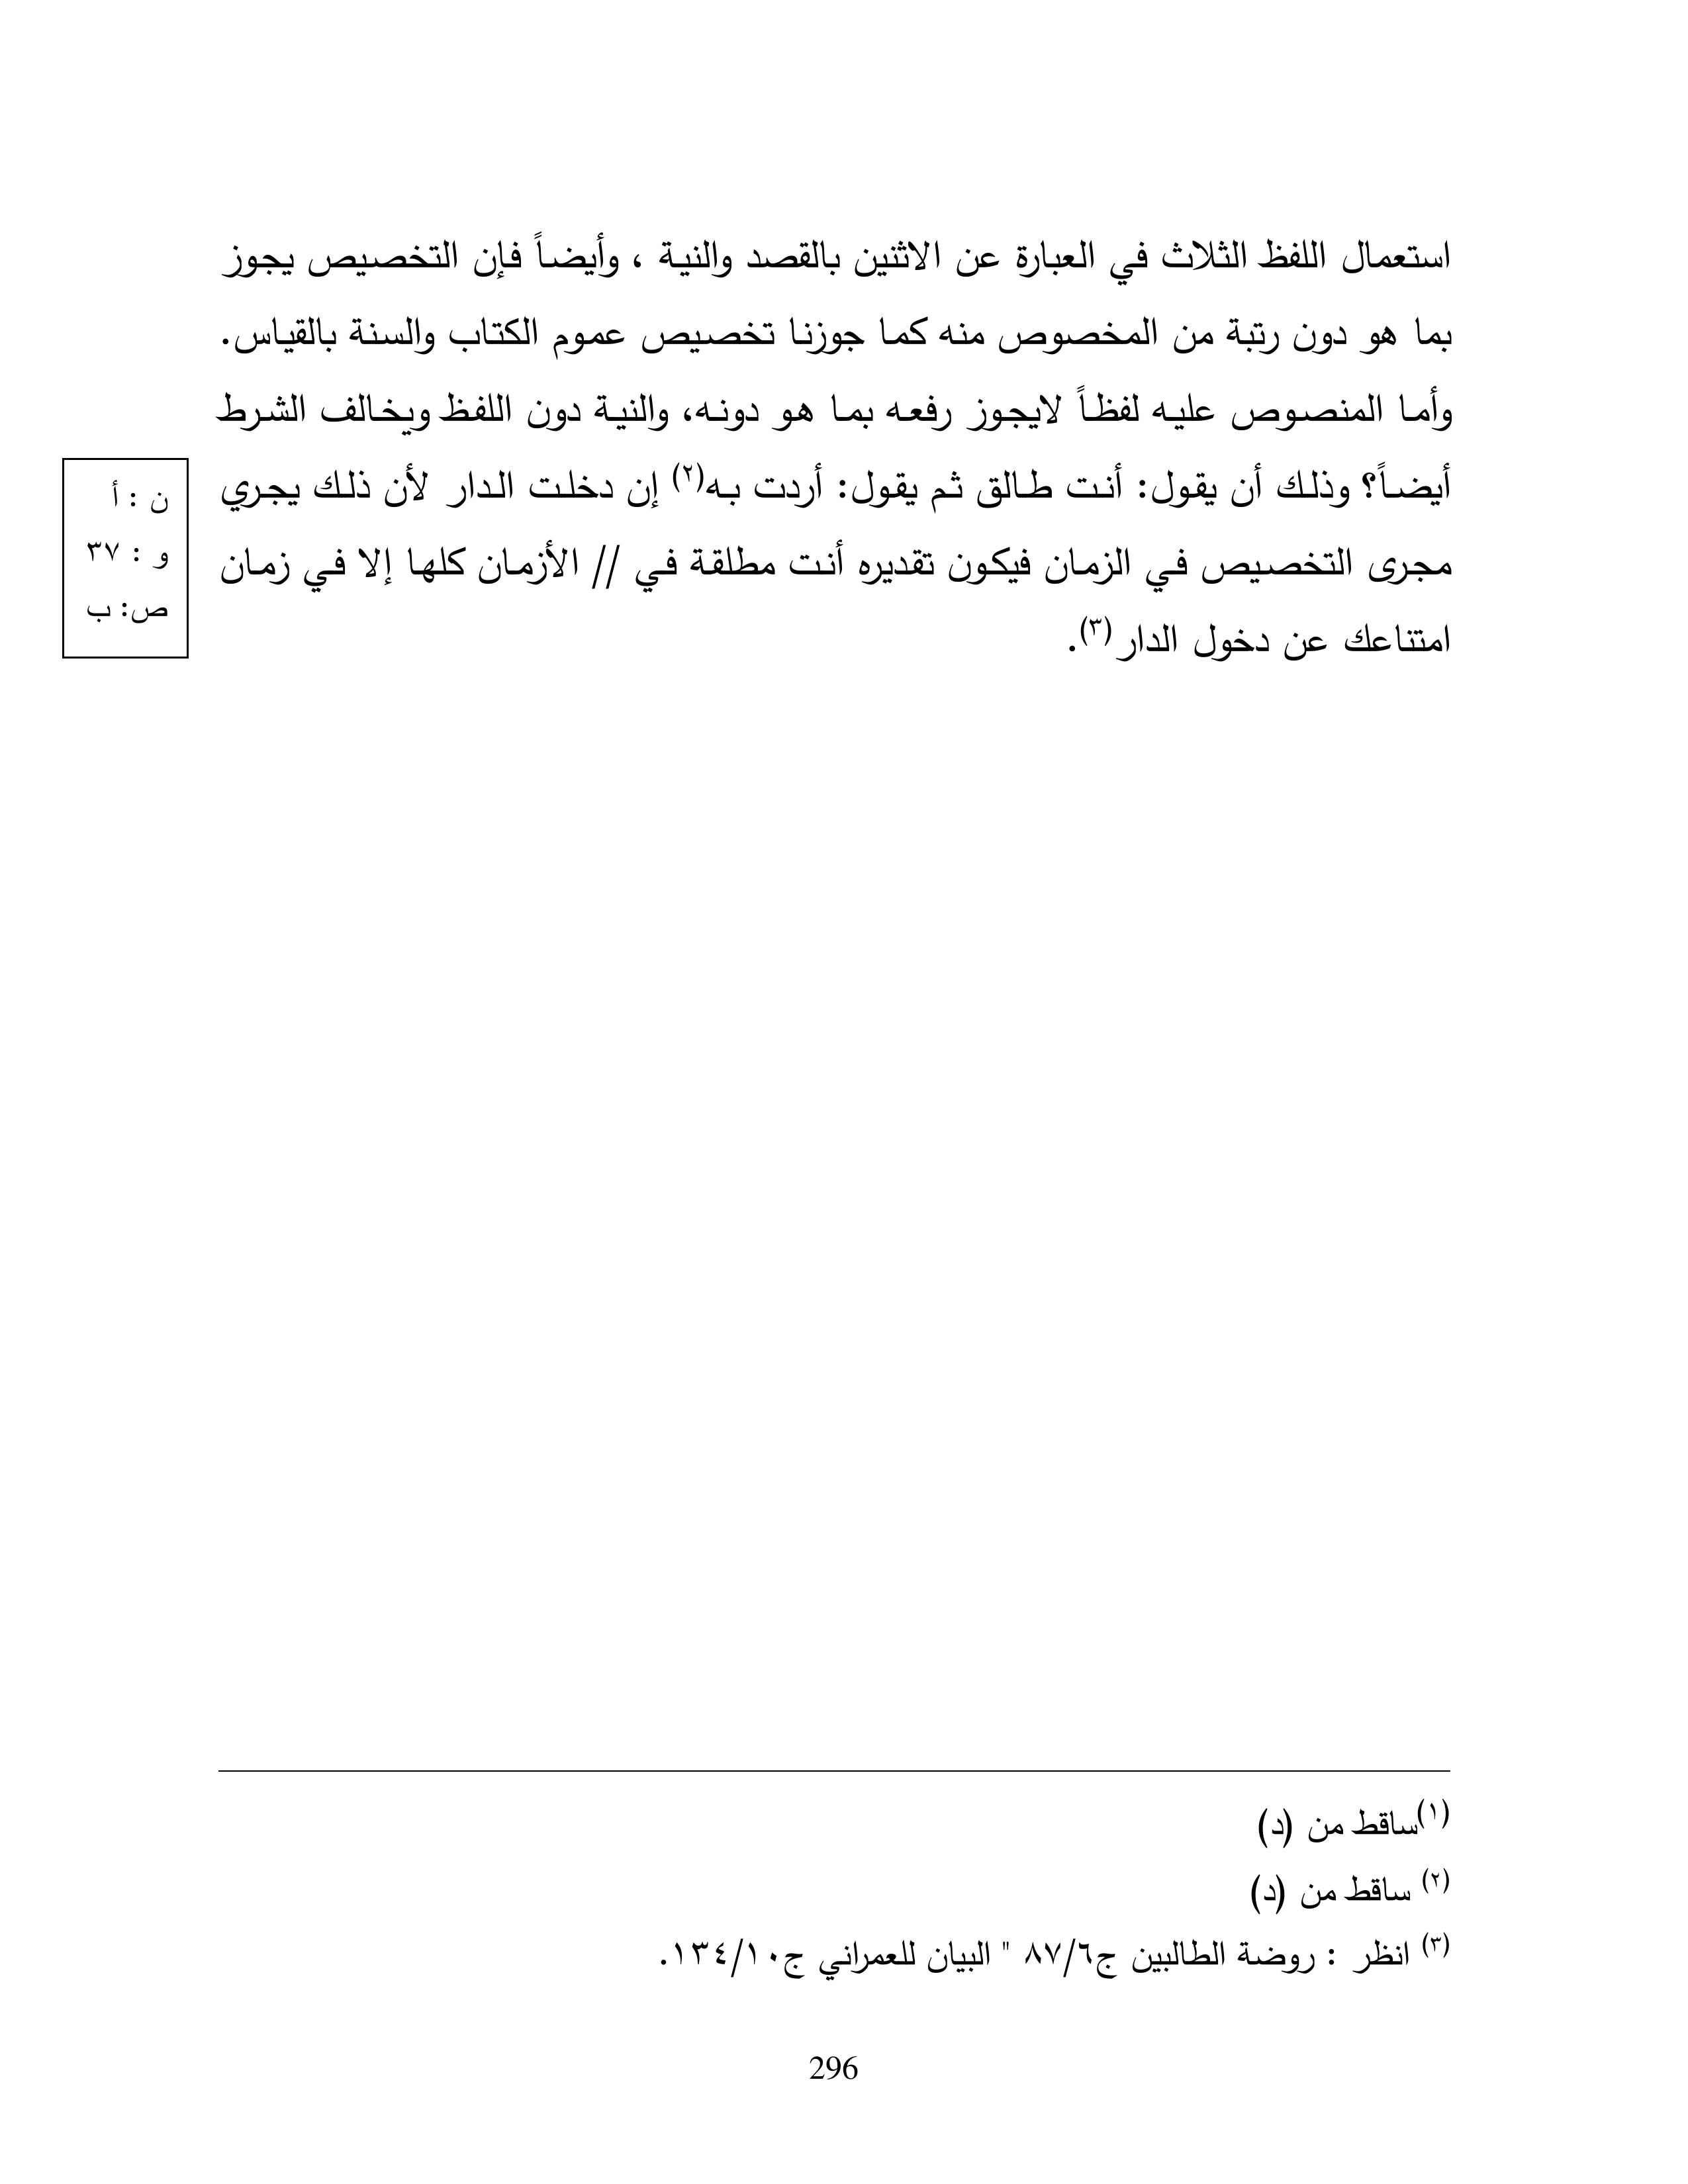 استعمال اللفظ الثلاث في العبارة عن الاثنين بالقصد والنية ، وأيضاً فإن التخصيص يجوز
بما هو دون رتبة من المخصوص منه كما جوزنا تخصيص عموم الكتاب والسنة بالقياس.
وأما المنصوص عليه لفظاً لايجوز رفعه بما هو دونه، والنية دون اللفظ ويخالف الشرط
أيضاً؟ وذلك أن يقول: أنت طالق ثم يقول: أردت به(٢) إن دخلت الدار لأن ذلك يجري
مجرى التخصيص في الزمان فيكون تقديره أنت مطلقة في // الأزمان كلها إلا في زمان
امتناعك عن دخول الدار(٣).
ن : أ
و : ٣٧
ص: ب
(١)ساقط من (د)
(٢) ساقط من (د)
(٣) انظر : روضة الطالبين ج٨٧/٦ " البيان للعمراني ج١٣٤/١٠.
296